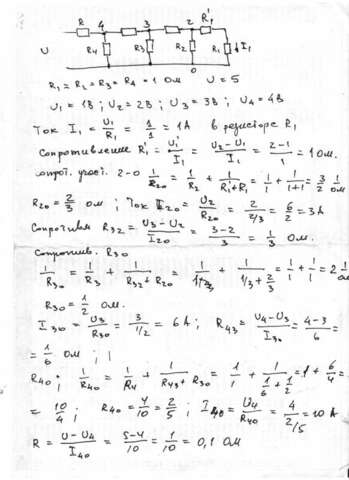 R 4 3 2 R₁'
U R₄ R₃ R₂ R₁ ↓I₁
0
R₁ = R₂ = R₃ = R₄ = 1 Ом U = 5
U₁ = 1В ; U₂ = 2В ; U₃ = 3В ; U₄ = 4В
Ток I₁ = U₁/R₁ = 1/1 = 1А в резисторе R₁
Сопротивление R₁' = U₁'/I₁ = (U₂-U₁)/I₁ = (2-1)/1 = 1 Ом.
2-0 1/R₂₀ = 1/R₂ + 1/(R₁'+R₁) = 1/1 + 1/(1+1) = 3/2 1/Ом
R₂₀ = 2/3 Ом ; Ток I₂₀ = U₂/R₂₀ = 2/(2/3) = 6/2 = 3А
R₃₂ = (U₃-U₂)/I₂₀ = (3-2)/3 = 1/3 Ом.
Сопротив. R₃₀
1/R₃₀ = 1/R₃ + 1/(R₃₂+R₂₀) = + 1/(1/3+2/3) = 1/1 + 1/1 = 2 1/Ом
R₃₀ = 1/2 Ом.
I₃₀ = U₃/R₃₀ = 3/(1/2) = 6А ; R₄₃ = (U₄-U₃)/I₃₀ = (4-3)/6 =
= 1/6 Ом ;
R₄₀ ; 1/R₄₀ = 1/R₄ + 1/(R₄₃+R₃₀) = 1/1 + 1/(1/6+1/2) = 1 + 6/4 =
= 10/4 ; R₄₀ = 4/10 = 2/5 ; I₄₀ = U₄/R₄₀ = 4/(2/5) = 10А
R = (U-U₄)/I₄₀ = (5-4)/10 = 1/10 = 0,1 Ом